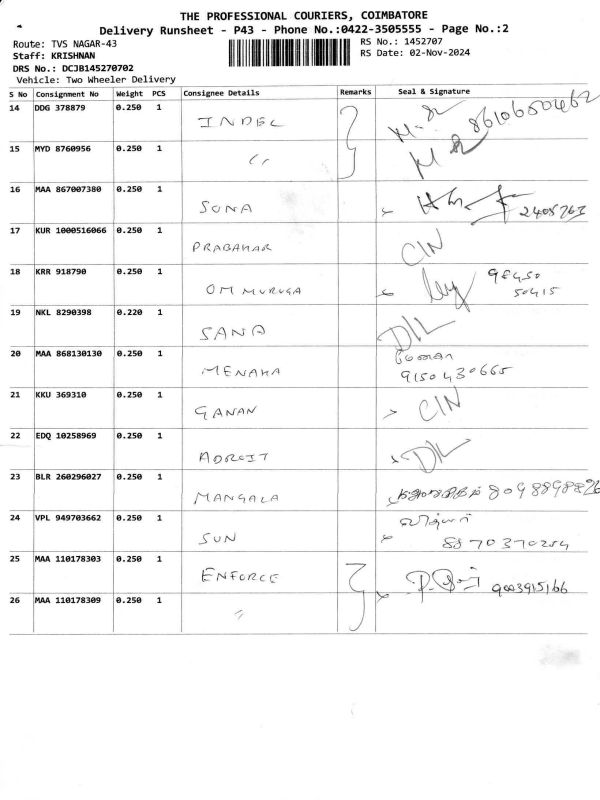 THE PROFESSIONAL COURIERS, COIMBATORE
Delivery Runsheet - P43 - Phone No.:0422-3505555 - Page No.:2
Route: TVS NAGAR-43
RS No.: 1452707
Staff: KRISHNAN
RS Date: 02-Nov-2024
DRS No.: DCJB145270702
Vehicle: Two Wheeler Delivery
S No Consignment No Weight PCS Consignee Details Remarks Seal & Signature
14 DDG 378879 0.250 1 INDEL 8610650462
15 MYD 8760956 0.250 1 〃
16 MAA 867007380 0.250 1 SUNA 2408763
17 KUR 1000516066 0.250 1 PRABAHAR CIN
18 KRR 918790 0.250 1 OM MURUGA 98450
50415
19 NKL 8290398 0.220 1 SANA D/L
20 MAA 868130130 0.250 1 MENAKA மேனகா
9150430665
21 KKU 369310 0.250 1 GANAN CIN
22 EDQ 10258969 0.250 1 ADROIT D/L
23 BLR 260296027 0.250 1 MANGALA 8098898826
24 VPL 949703662 0.250 1 SUN
8870370254
25 MAA 110178303 0.250 1 ENFORCE 9003915166
26 MAA 110178309 0.250 1 〃